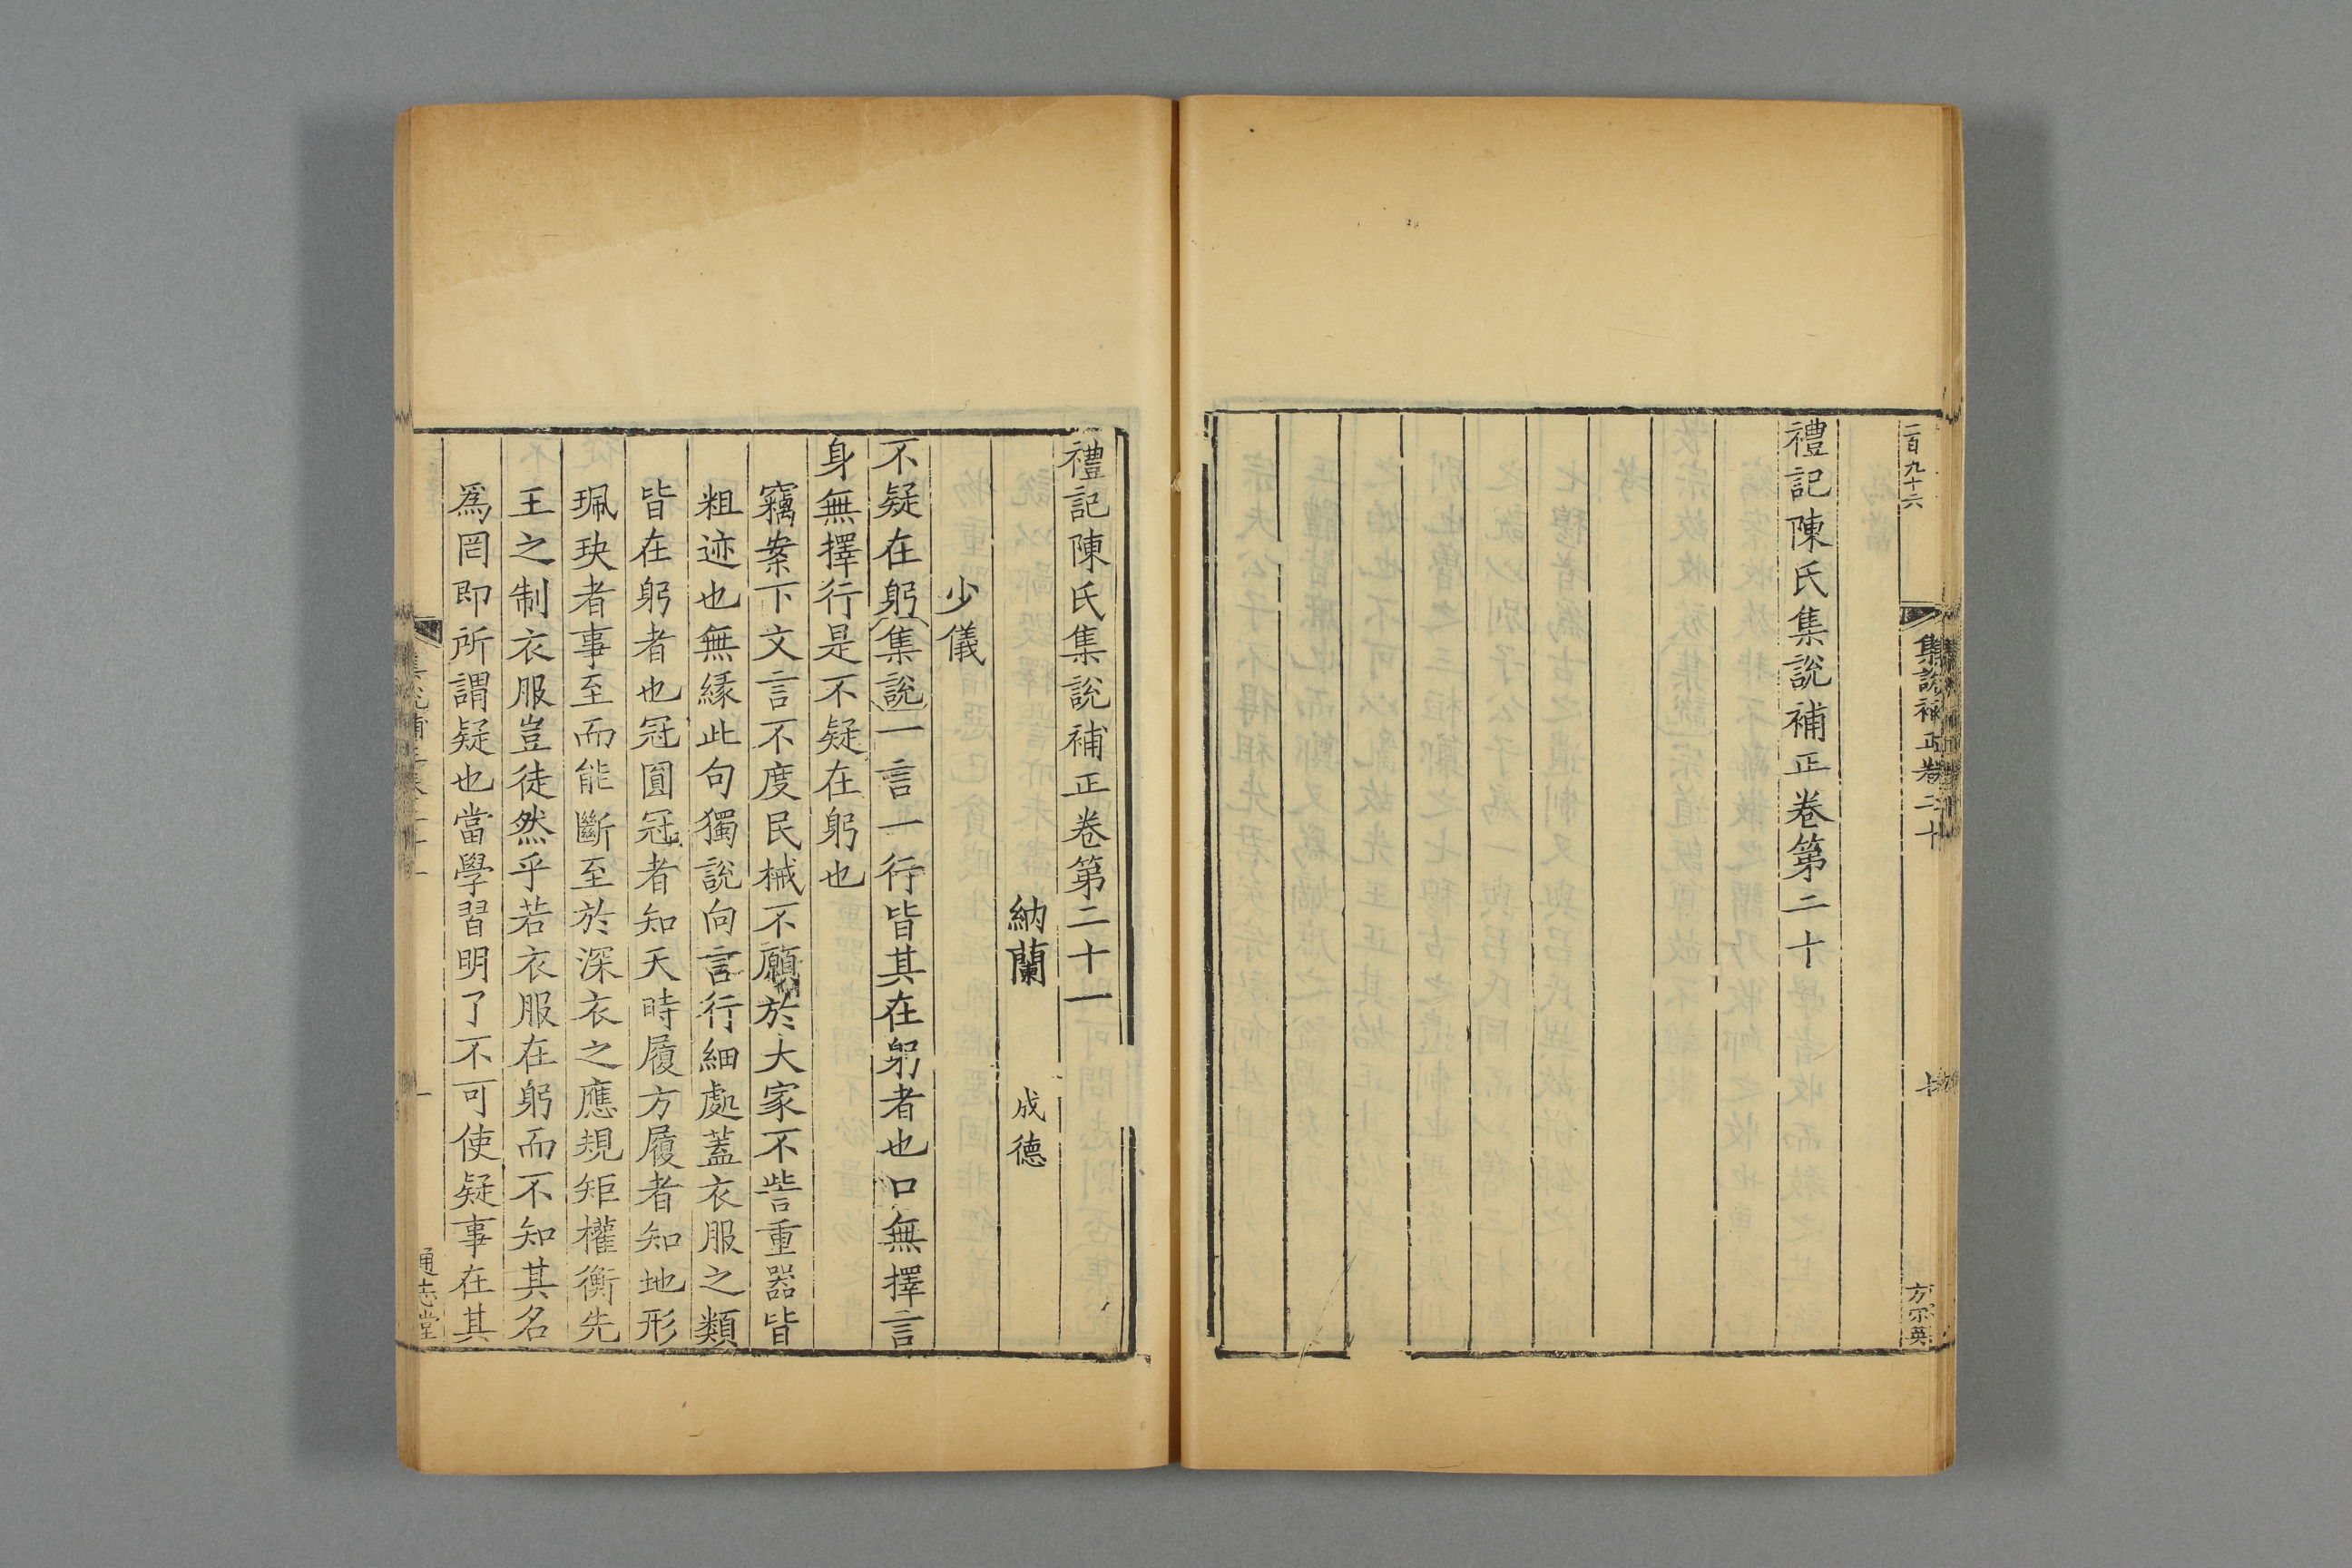 二百九十六
集說補正卷二十
方宗英
禮記陳氏集說補正卷第二十
禮記陳氏集說補正卷第二十一
納蘭 成德
少儀
不疑在躬集說一言一行皆其在躬者也口無擇言
身無擇行是不疑在躬也
竊案下文言不度民械不願於大家不訾重器皆
粗迹也無緣此句獨說向言行細處蓋衣服之類
皆在躬者也冠圓冠者知天時履方履者知地形
珮玦者事至而能斷至於深衣之應規矩權衡先
王之制衣服豈徒然乎若衣服在躬而不知其名
爲罔即所謂疑也當學習明了不可使疑事在其
一
通志堂